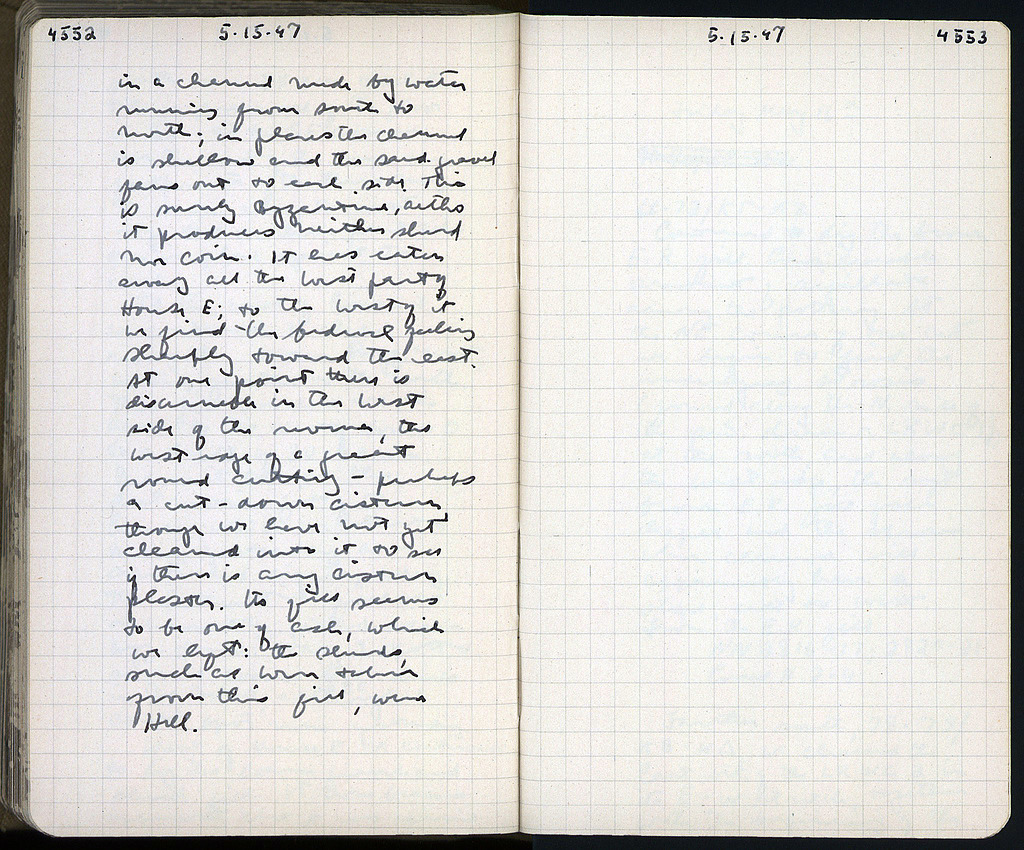 4552 5·15·47
in a channel made by water
running from south to
north; in places the channel
is shallow and the sand-gravel
fans out to each side. This
is surely Byzantine, altho
it produces neither sherd
nor coin. It has eaten
away all the west part of
House E; to the west of it
we find the bedrock falling
sharply toward the east.
At one point there is
discernible in the west
side of the the
west edge of a great
round cutting – perhaps
a cut-down cistern
though we have not yet
cleaned into it to see
if there is any cistern
plaster. Its fill seems
to be one of ash, which
we left: the sherds,
such as were taken
from this fill, were
Hell.
5·15·47 4553